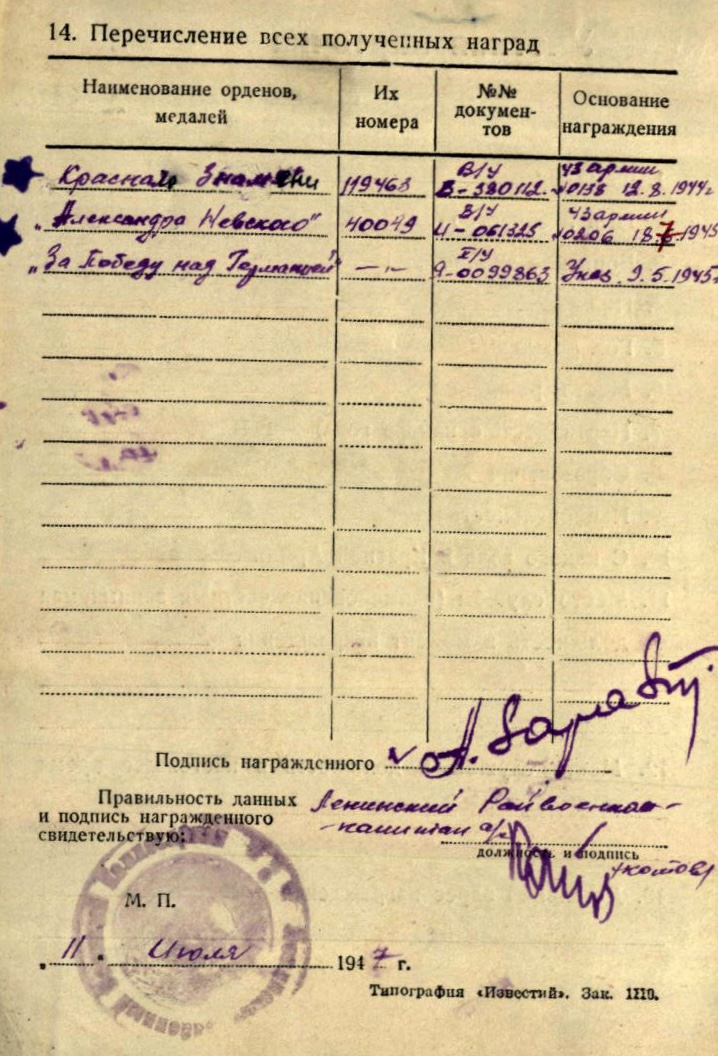 14. Перечисление всех полученных наград
Наименование орденов, медалей
Их номера
№№ документов
Основание награждения
Красная Знамени 119463 В/У В-380112 43 армии №0158 12.8.1944г
„Александра Невского" 40049 В/У 061325 43 армии №0206 18.7.1945
„За Победу над Германией" —"— Х/У 0099863 Указ 9.5.1945г
Подпись награжденного
Правильность данных Ленинский Райвоенком
и подпись награжденного капитан а/с
свидетельствую:
должность и подпись
М. П.
„11" Июля 1947 г.
Типография «Известий». Зак. 1110.